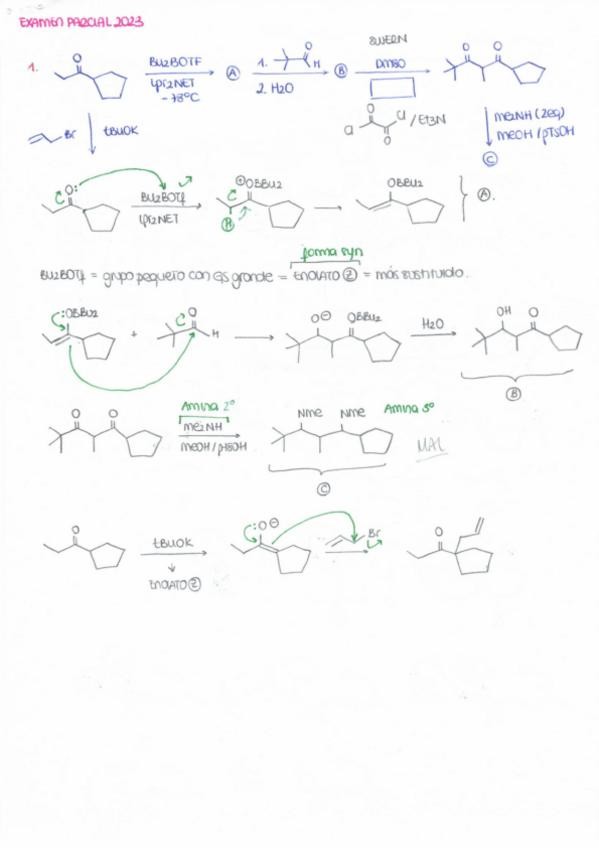 EXAMEN PARCIAL 2023
1. O Bu2BOTF iPr2NET -78ºC A 1. O H 2. H2O B SWERN DMSO O O
O Cl Cl O / Et3N
Br tBuOK
Me2NH (2eq) MeOH / pTSOH
C
O: Bu2BOTf iPr2NET ⊕OBBu2 H OBBu2 A.
forma syn
Bu2BOTf = grupo pequeño con GS grande = ENOLATO 2 = más sustituido.
:OBBu2 + O H O⊖ OBBu2 H2O OH O
B
O O Amina 2º Me2NH MeOH / pTSOH NMe NMe Amina 3º
MAL
C
O tBuOK :O⊖ Br O
ENOLATO 2